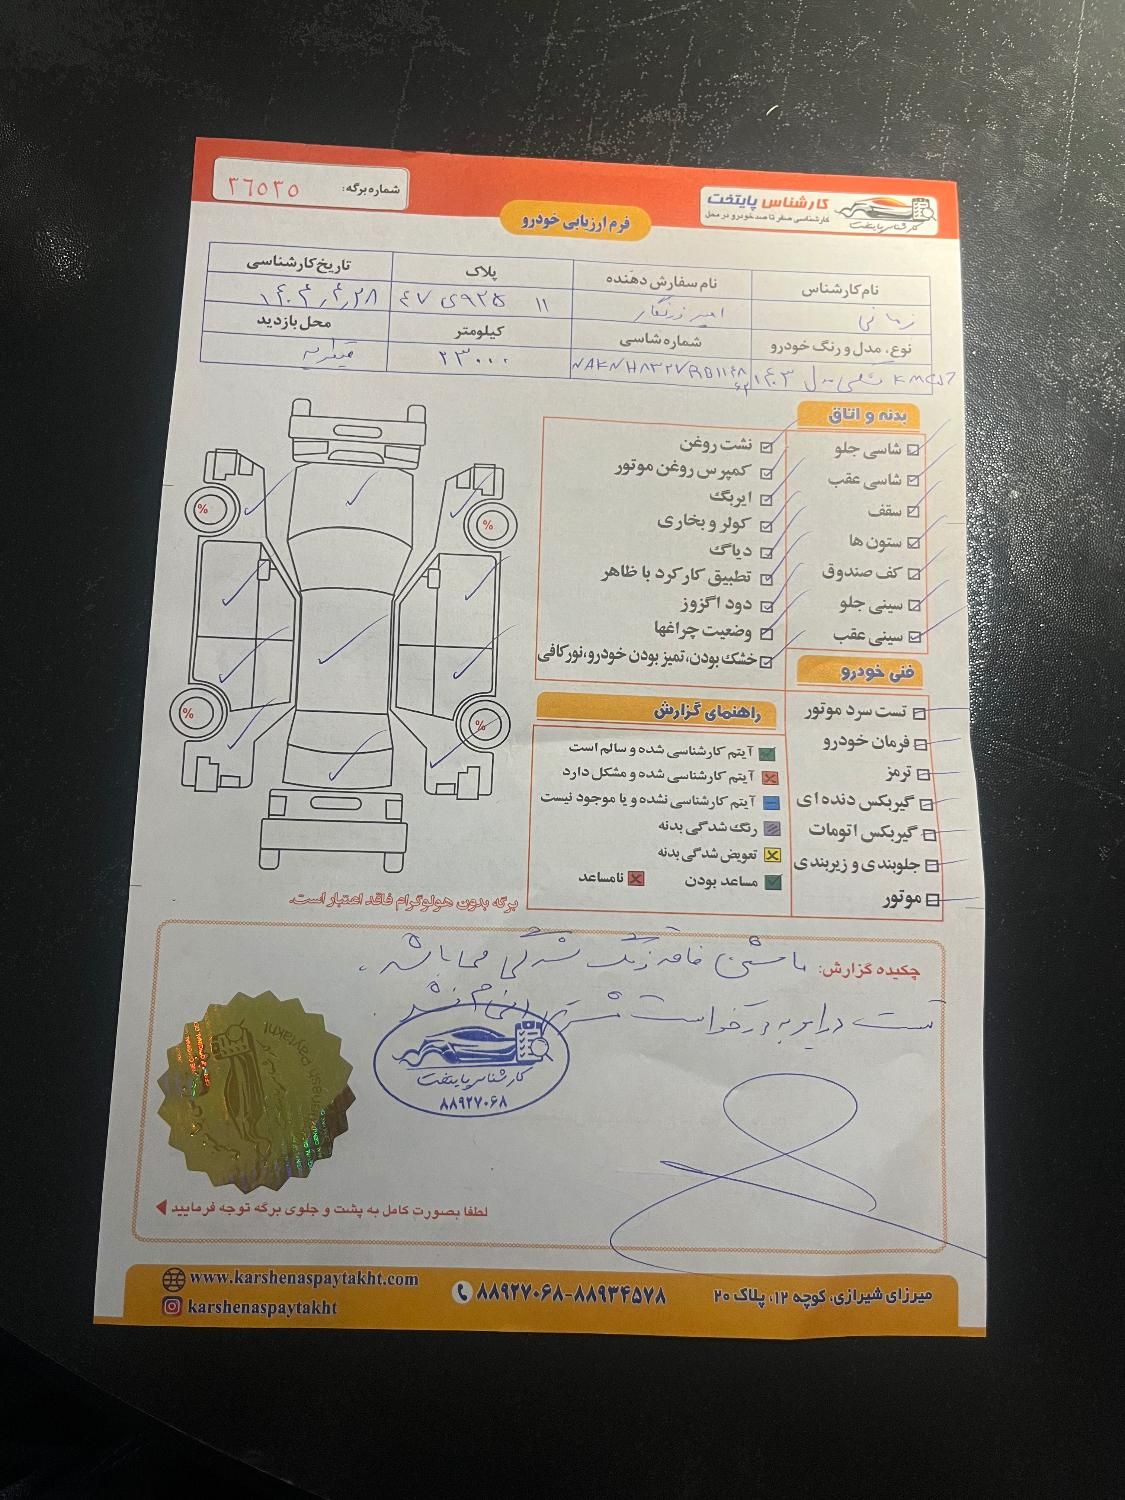 شماره برگه: ۳۶۵۳۵
کارشناس پایتخت
کارشناسی صفر تا صد خودرو در محل
کارشناس پایتخت
فرم ارزیابی خودرو
نام کارشناس
نام سفارش دهنده
پلاک
تاریخ کارشناسی
زمانی
امیر
۱۱ ۹۲۵ی۴۷
۱۴۰۴,۴,۲۸
نوع، مدل و رنگ خودرو
شماره شاسی
کیلومتر
محل بازدید
KMCJ7
مدل ۱۴۰۳
۲۳۰۰۰
بدنه و اتاق
شاسی جلو
شاسی عقب
سقف
ستون ها
کف صندوق
سینی جلو
سینی عقب
نشت روغن
کمپرس روغن موتور
ایربگ
کولر و بخاری
دیاگ
تطبیق کارکرد با ظاهر
دود اگزوز
وضعیت چراغها
خشک بودن،تمیز بودن خودرو،نورکافی
فنی خودرو
تست سرد موتور
فرمان خودرو
ترمز
گیربکس دنده ای
گیربکس اتومات
جلوبندی و زیربندی
موتور
راهنمای گزارش
آیتم کارشناسی شده و سالم است
آیتم کارشناسی شده و مشکل دارد
آیتم کارشناسی نشده و یا موجود نیست
رنگ شدگی بدنه
تعویض شدگی بدنه
مساعد بودن
نامساعد
%
%
%
%
برگه بدون هولوگرام فاقد اعتبار است.
چکیده گزارش: ماشین فاقد رنگ شدگی می باشد.
تست درایو به درخواست مشتری انجام نشد
کارشناس پایتخت
۸۸۹۲۷۰۶۸
لطفا بصورت کامل به پشت و جلوی برگه توجه فرمایید
www.karshenaspaytakht.com
karshenaspaytakht
۸۸۹۲۷۰۶۸-۸۸۹۳۴۵۷۸
میرزای شیرازی، کوچه ۱۲، پلاک ۲۰